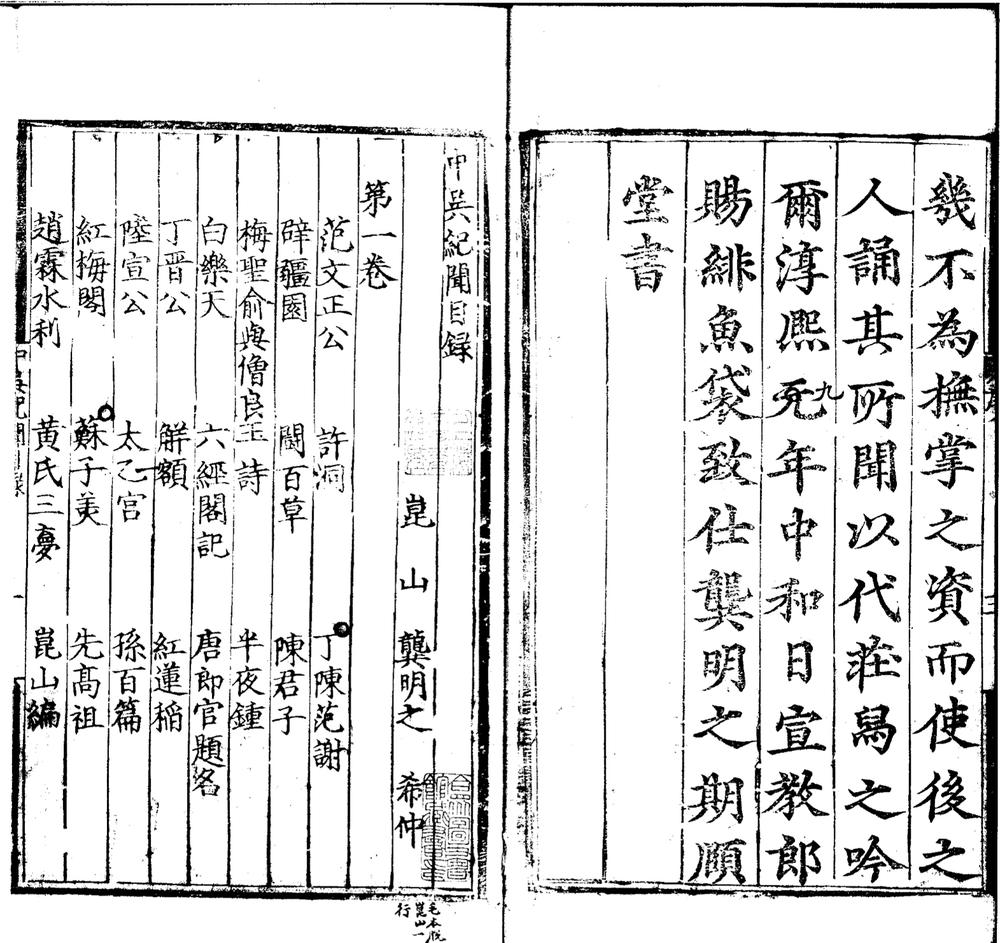 幾不為撫掌之資而使後之
人誦其所聞以代莊舃之吟
爾淳熙元九年中和日宣教郎
賜緋魚袋致仕龔明之期頤
堂書
中吳紀聞目錄
崑山 龔明之 希仲
第一卷
范文正公 許洞 丁陳范謝
辟疆園 闘百草 陳君子
梅聖俞與僧良玉詩 半夜鍾
白樂天 六經閣記 唐郎官題名
丁晋公 解額 紅蓮稻
陸宣公 太乙宫 孫百篇
紅梅閣 蘇子美 先髙祖
趙霖水利 黄氏三夢 崑山編
毛本脫
崑山一
行